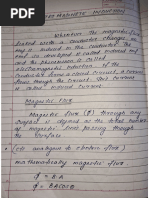 INDUCTION
Whenever the magnetic flux
linked with a conductor changes an
emf is induced in the conductor. The
emf so developed is called induced emf
and the phenomenon is called
electromagnetic induction. If the
conductor form a closed circuit, a current
circuit, this current
is called induced current.
Magnetic flux
Magnetic flux (Φ) through any
surface is defined as the total number
of magnetic lines passing through
surface.
mathematically magnetic flux
Φ = B·A
Φ = BACOSΘ